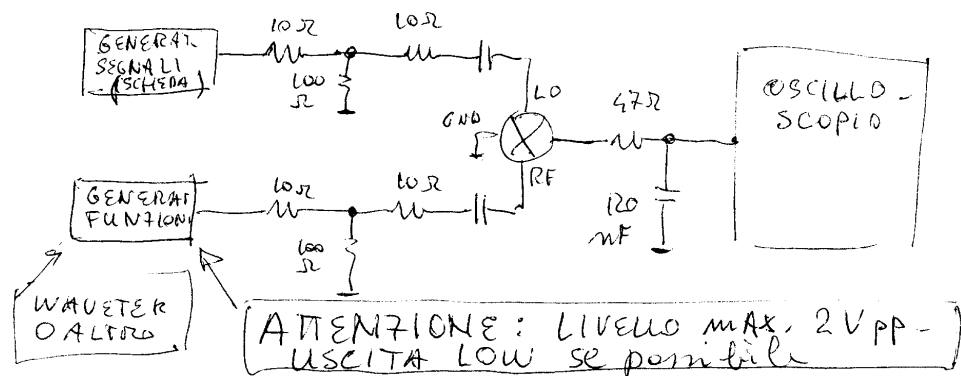 10Ω
10Ω
GENERAT.
SEGNALI
(SCHEDA)
100
Ω
LO
GND
47Ω
OSCILLO-
SCOPIO
RF
GENERAT
FUNZIONI
10Ω
10Ω
100
Ω
120
nF
WAVETEK
O ALTRO
ATTENZIONE: LIVELLO MAX. 2Vpp-
USCITA LOW se possibile